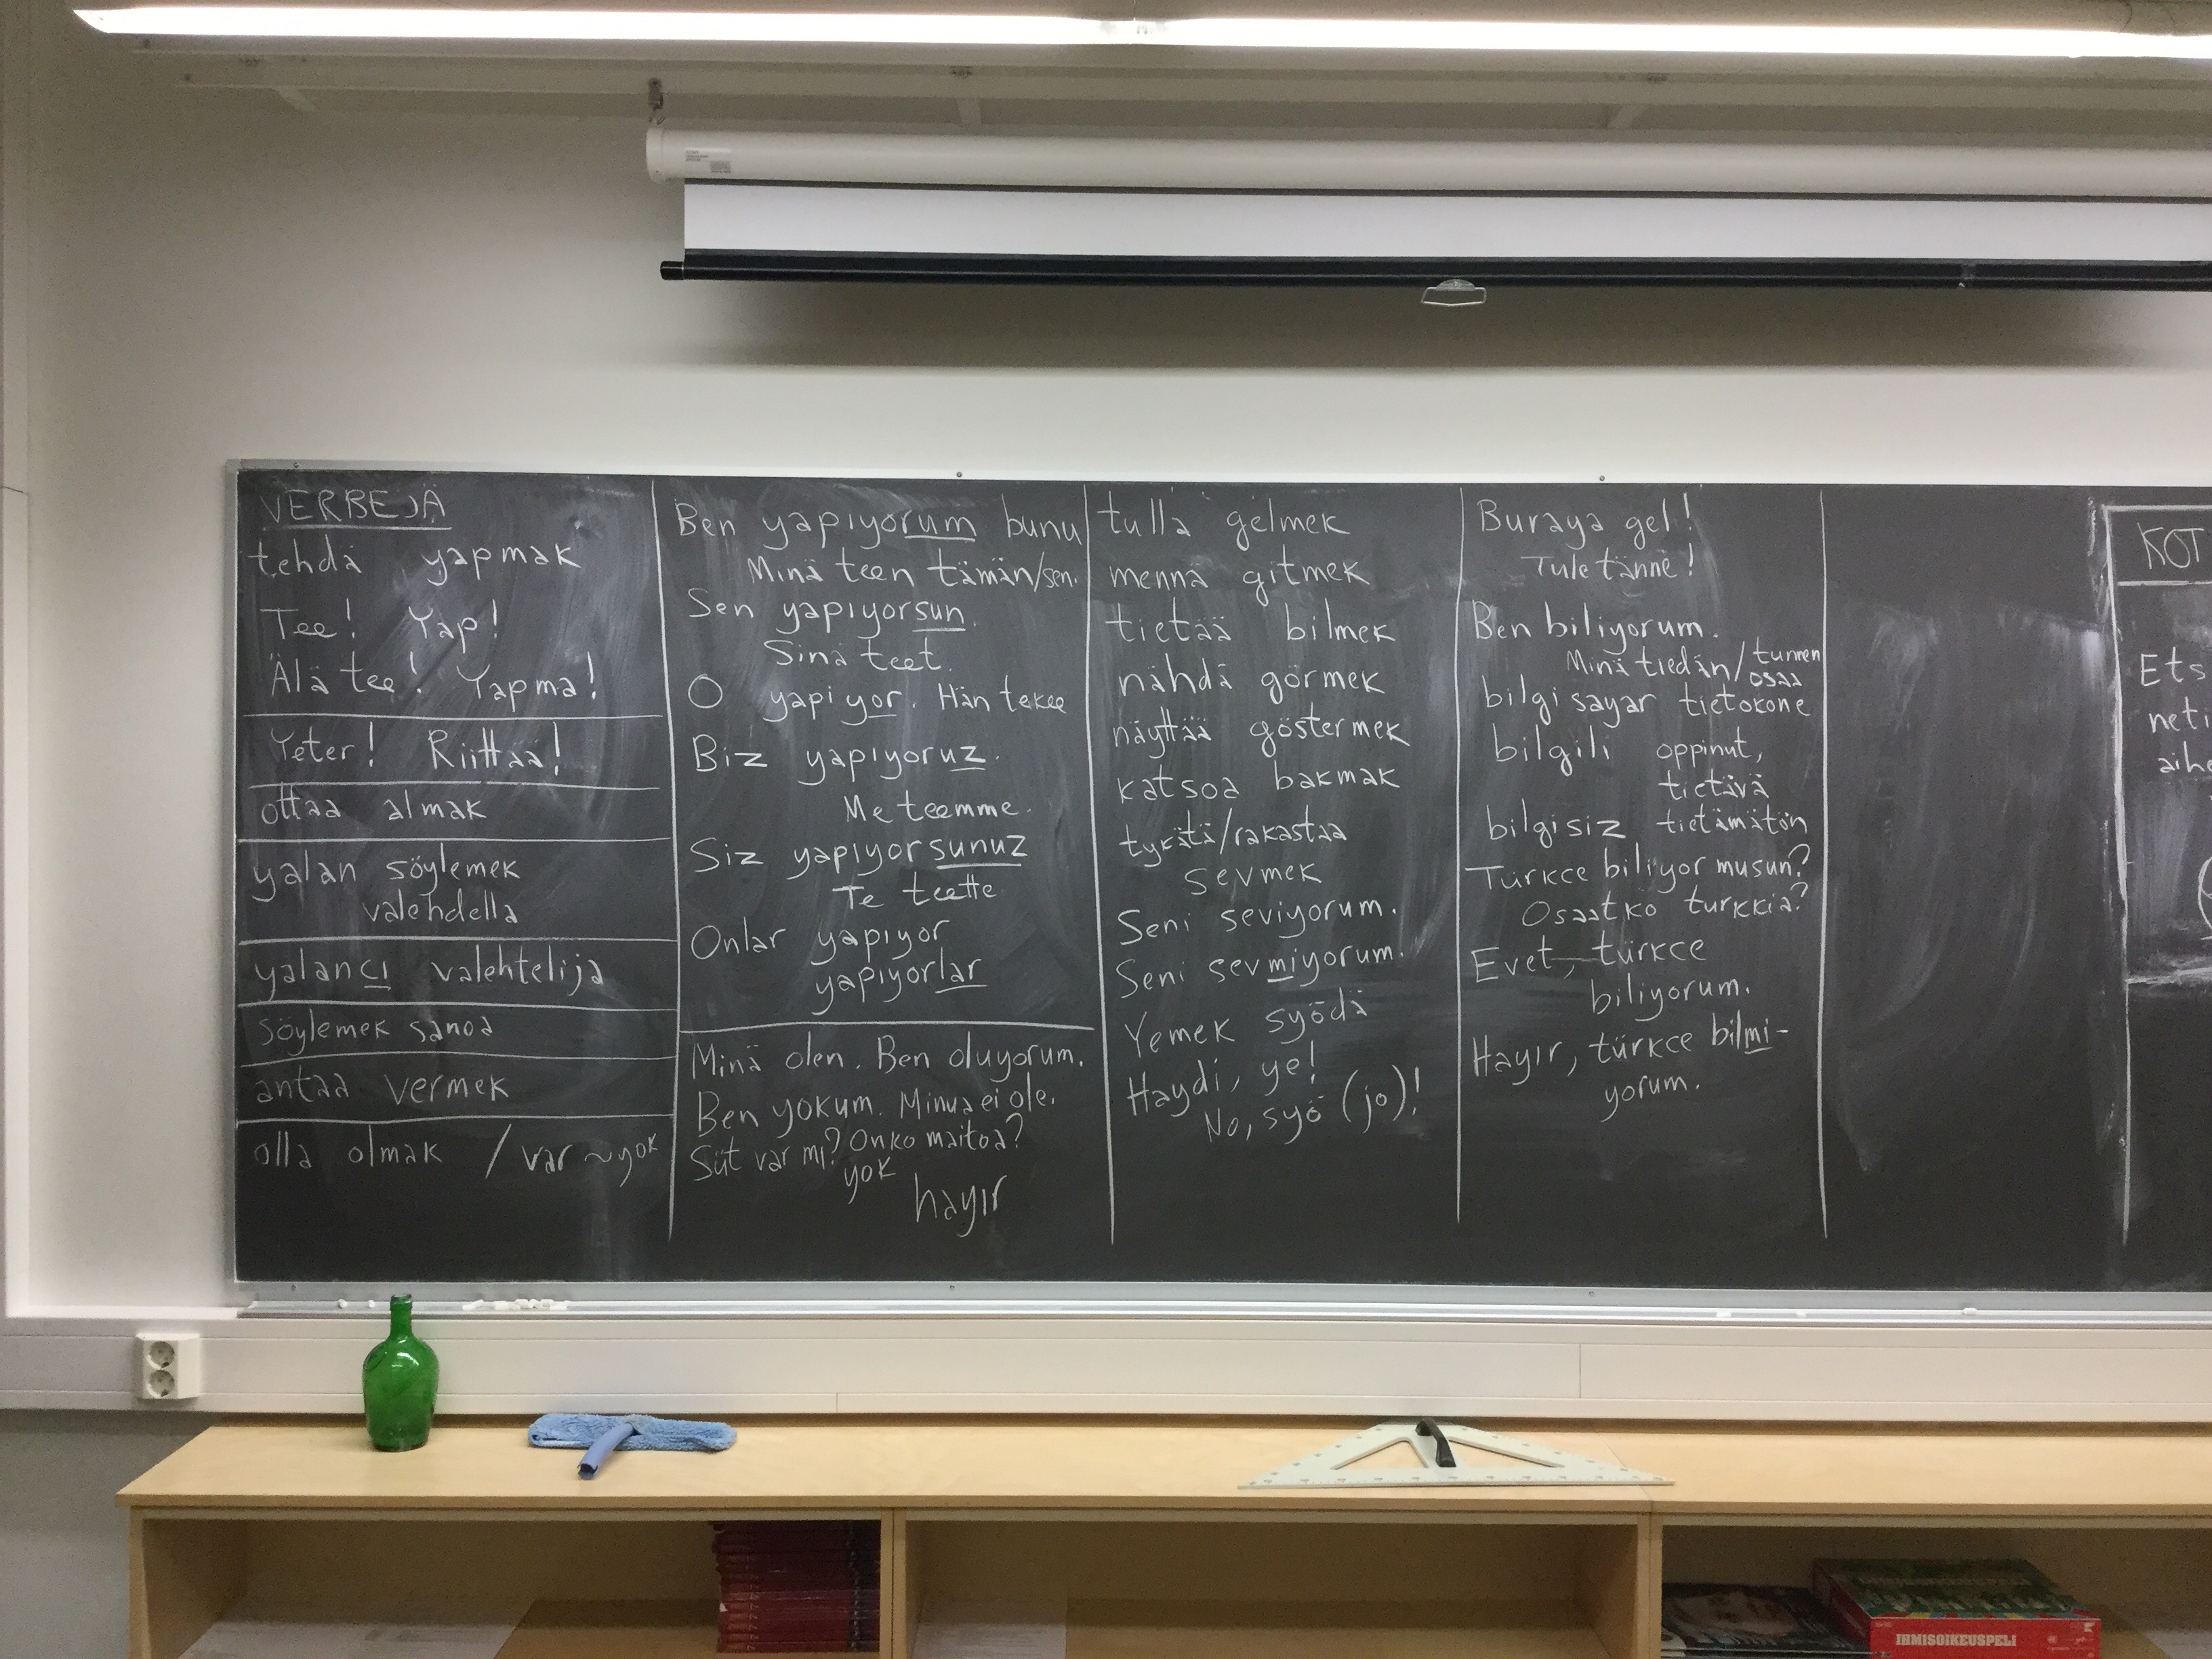 VERBEJÄ
tehdä yapmak
Tee! Yap!
Älä tee! Yapma!
Yeter! Riittää!
ottaa almak
yalan söylemek
valehdella
yalancı valehtelija
söylemek sanoa
antaa vermek
olla olmak / var ~ yok
Ben yapıyorum bunu
Minä teen tämän/sen.
Sen yapıyorsun.
Sinä teet.
O yapıyor. Hän tekee
Biz yapıyoruz.
Me teemme.
Siz yapıyorsunuz
Te teette
Onlar yapıyor
yapıyorlar
Minä olen. Ben oluyorum.
Ben yokum. Minua ei ole.
Süt var mı? Onko maitoa?
yok
hayır
tulla gelmek
mennä gitmek
tietää bilmek
nähdä görmek
näyttää göstermek
katsoa bakmak
tykätä/rakastaa
sevmek
Seni seviyorum.
Seni sevmiyorum.
Yemek syödä
Haydi, ye!
No, syö (jo)!
Buraya gel!
Tule tänne!
Ben biliyorum.
Minä tiedän/tunnen
osaa
bilgisayar tietokone
bilgili oppinut,
tietävä
bilgisiz tietämätön
Türkce biliyor musun?
Osaatko turkkia?
Evet, türkce
biliyorum.
Hayır, türkce bilmi-
yorum.
KOT
Ets
neti
aihe
IHMISOIKEUSPELI